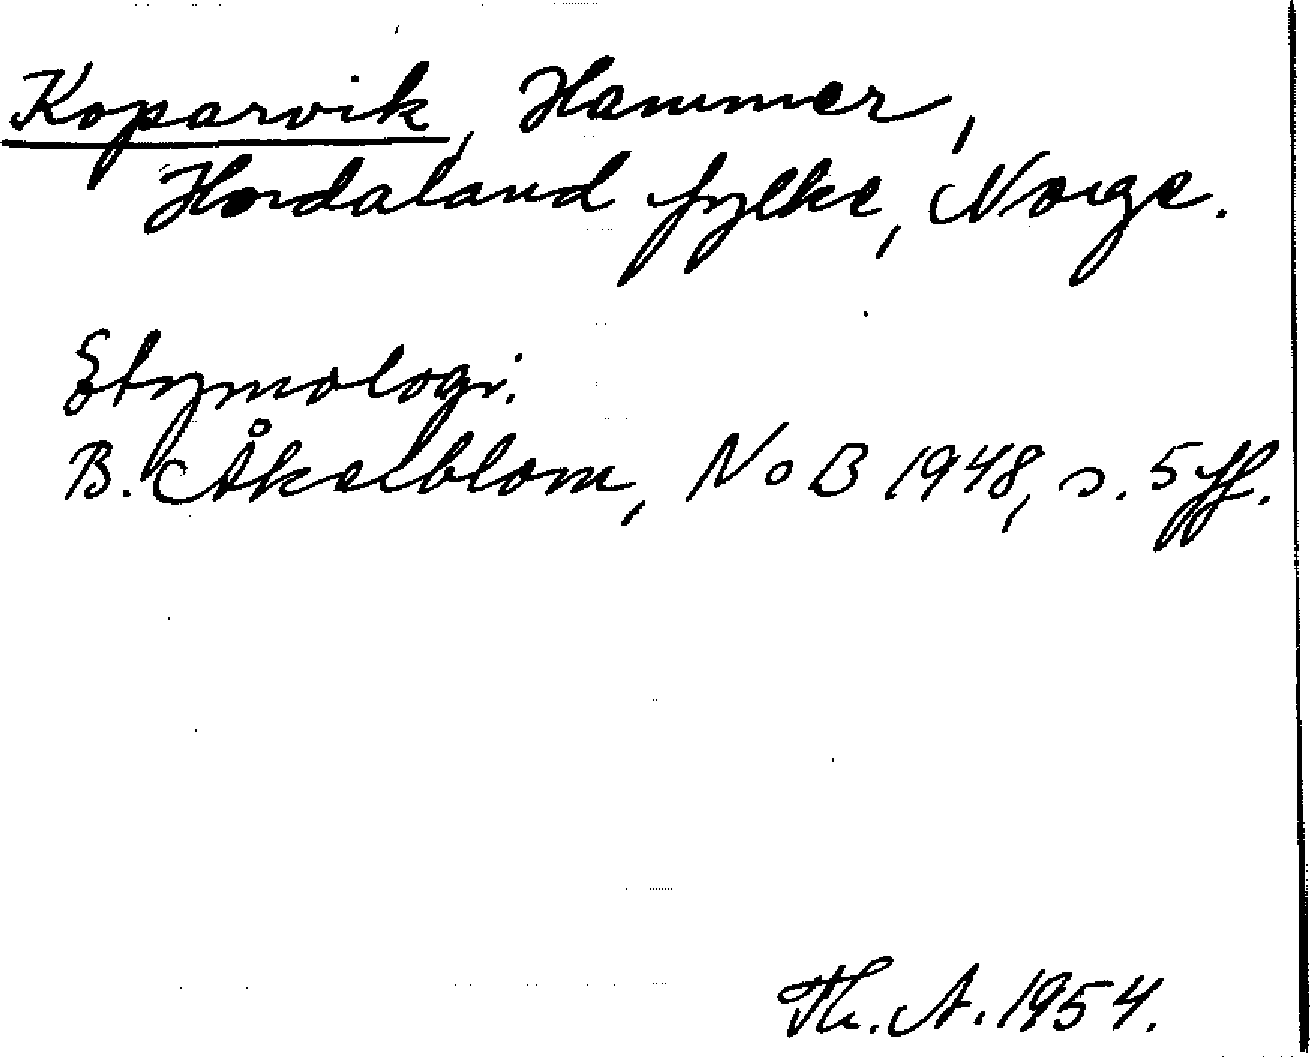 Koparvik, Hammer,
Hordaland fylke, Norge.
Etymologi.
B. Åkerblom, NoB 1948, s. 5 ff.
Th. A. 1954.